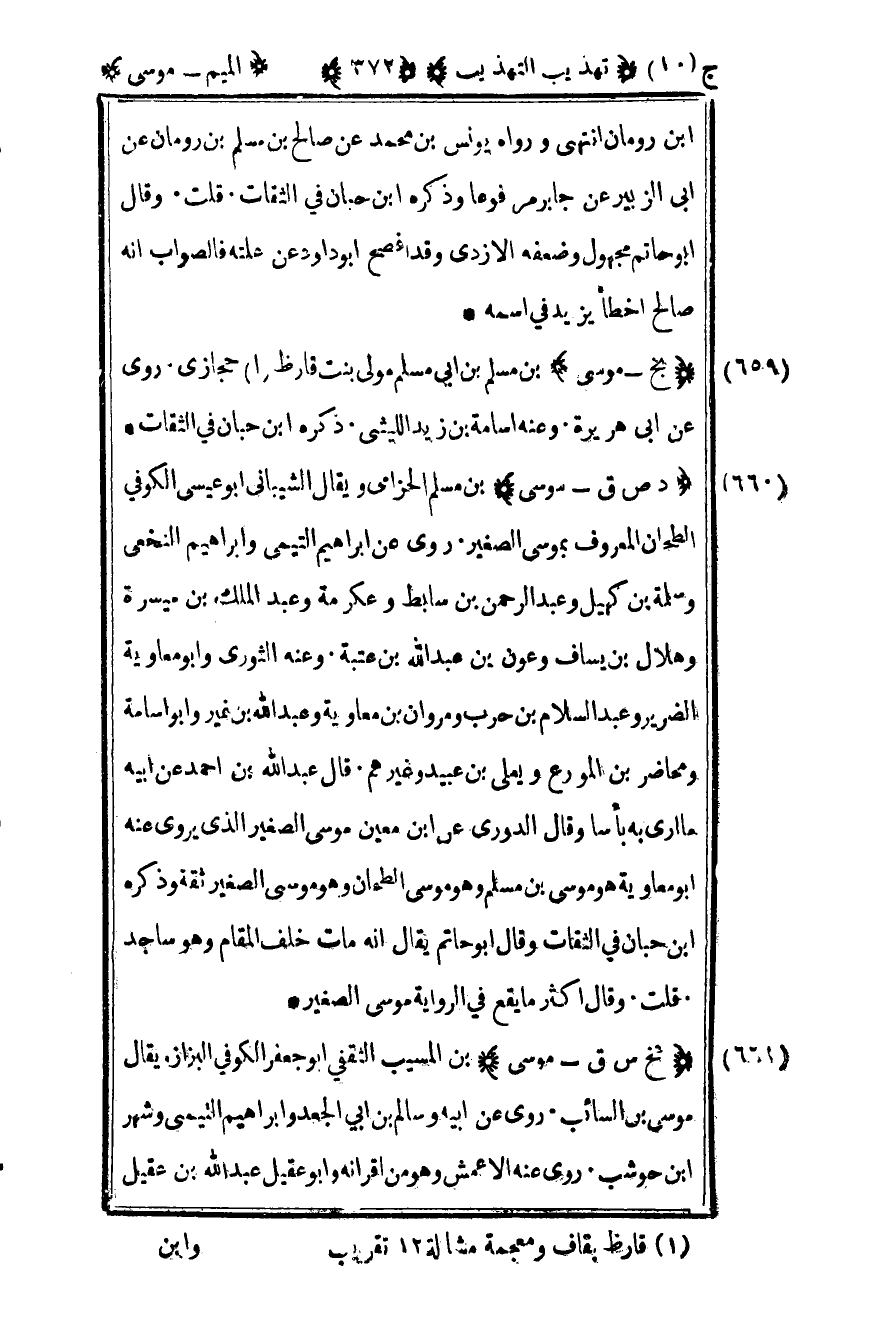 ج (١٠) ﴿ تهذيب التهذيب ﴾ ﴿ ٣٧٢ ﴾ ﴿ الميم – موسى ﴾
ابن رومان انتهى و رواه يونس بن محمد عن صالح بن مسلم بن رومان عن
ابى الزبير عن جابر مر فوعا وذكره ابن حبان في الثقات · قلت · وقال
ابوحاتم مجهول وضعفه الازدى وقد افصح ابوداود عن علته فالصواب انه
صالح اخطأ يزيد في اسمه •
(٦٥٩) ﴿ بخ – موسى ﴾ بن مسلم بن ابي مسلم مولى بنت قارظ (١) حجازى · روى
عن ابى هريرة · وعنه اسامة بن زيد الليثى · ذكره ابن حبان في الثقات •
(٦٦٠) ﴿ د ص ق – موسى ﴾ بن مسلم الحزامى و يقال الشيبانى ابوعيسى الكوفي
الطحان المعروف بموسى الصغير · روى عن ابراهيم التيمى وابراهيم النخعى
وسلمة بن كهيل وعبدالرحمن بن سابط و عكرمة وعبد الملك بن ميسرة
وهلال بن يساف وعون بن عبدالله بن عتبة · وعنه الثورى وابومعاوية
الضرير وعبدالسلام بن حرب ومروان بن معاوية وعبدالله بن نمير وابواسامة
ومحاضر بن المورع و يعلى بن عبيد وغيرهم · قال عبدالله بن احمد عن ابيه
ماارى به بأسا وقال الدورى عن ابن معين موسى الصغير الذى يروى عنه
ابومعاوية هو موسى بن مسلم وهو موسى الطحان وهو موسى الصغير ثقة وذكره
ابن حبان في الثقات وقال ابوحاتم يقال انه مات خلف المقام وهو ساجد
· قلت · وقال اكثر مايقع في الرواية موسى الصغير •
(٦٦١) ﴿ بخ س ق – موسى ﴾ بن المسيب الثقفي ابوجعفر الكوفي البزاز، يقال
موسى بن السائب · روى عن ابيه و سالم بن ابي الجعد وابراهيم التيمى وشهر
ابن حوشب · روى عنه الاعمش وهو من اقرانه وابوعقيل عبدالله بن عقيل
(١) قارظ بقاف ومعجمة مشالة ١٢ تقريب وابن